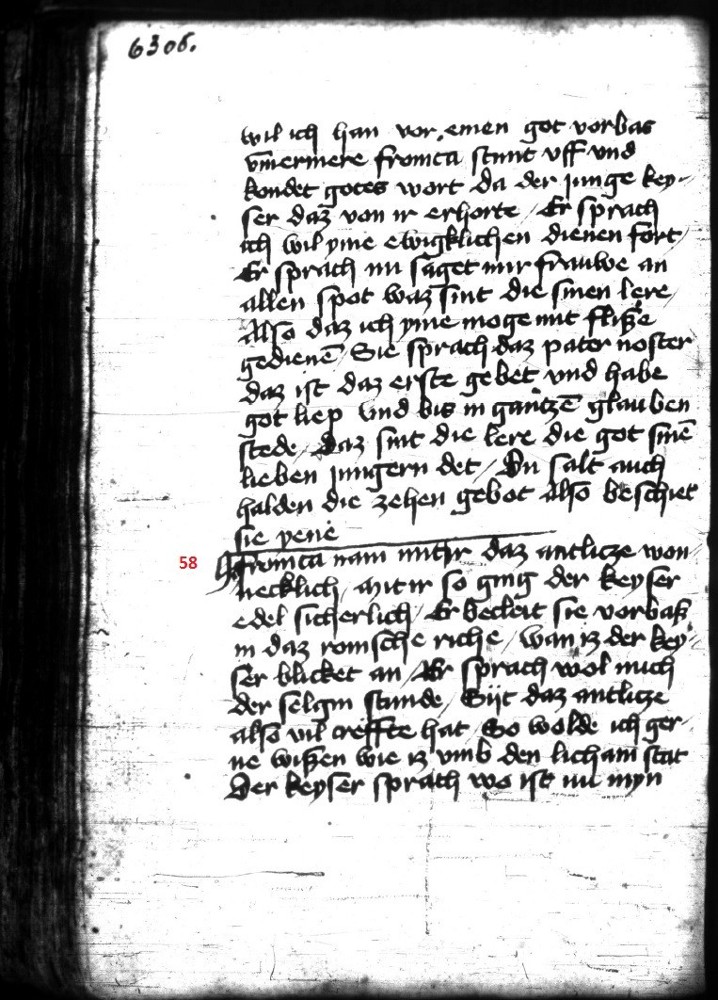 630b.
wil ich han vor emen got vorbas
vm̄ermere fronica stunt vff vnd
kondet gotes wort da der junge key-
ser daz von ir erhorte / Er sprach
ich wil yme ewigklichen dienen fort /
Er sprach nu saget mir frauwe an
allen spot waz sint die sinen lere /
Also daz ich yme moge mit fliße
gedienē / Sie sprach daz pater noster
daz ist daz erste gebet vnd habe
got liep vnd bis in gantzē glauben
stede / Daz sint die lere die got sinē
lieben jungern det / Du salt auch
halden die zehen gebot also beschiet
sie yene
58 fronica nam mit ir daz antlicze won-
necklich / mit ir so ging der keyser
edel sicherlich / Er becleit sie vorbaß
in daz romsche riche / wan iz der key-
ser blicket an / Er sprach wol mich
der selgin stunde / Siit daz antlicze
also vil creffte hat So wolde ich ger-
ne wißen wie iz vmb den licham stat
Der keyser sprach wo ist nu myn